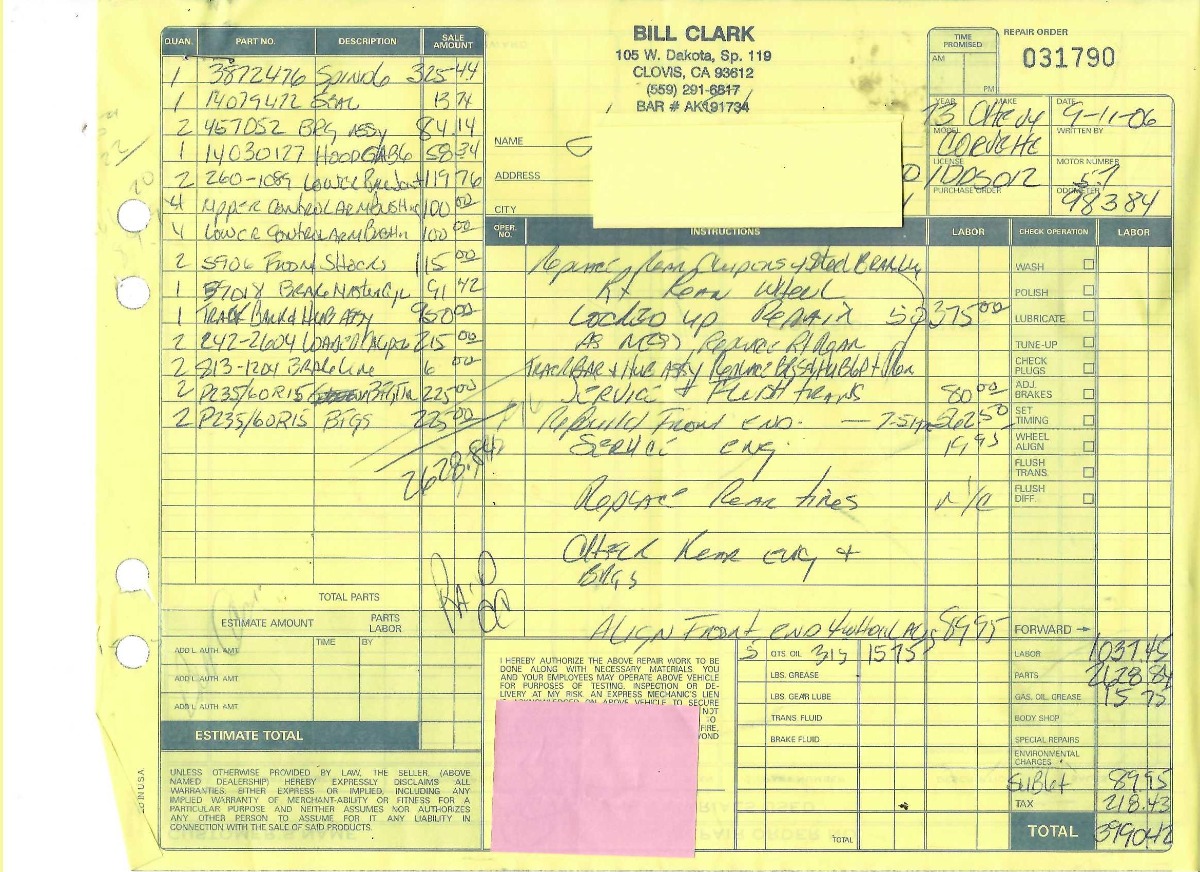 BILL CLARK
105 W. Dakota, Sp. 119
CLOVIS, CA 93612
(559) 291-6817
BAR # AK191734
TIME PROMISED
AM
PM
REPAIR ORDER
031790
YEAR 73 MAKE Chevy DATE 9-11-06
MODEL CORVETTE WRITTEN BY
LICENSE 1DDS012 MOTOR NUMBER 5.7
PURCHASE ORDER ODOMETER 98384
NAME
ADDRESS
CITY
QUAN. PART NO. DESCRIPTION SALE AMOUNT
1 3872476 325.44
1 14079422 SEAL 13 74
2 457052 BRG ASSY 84.14
1 14030127 HOOD 58.34
2 260-1089 LOWER 119 76
4 UPPER CONTROL ARM 100 00
4 LOWER CONTROL ARM 100 00
2 5906 FRONT SHOCKS 115 00
1 BRAKE MASTER CYL 91 42
1 HUB ASSY 950 00
2 242-2604 LOADED 215 00
2 813-1204 BRAKE LINE 6 00
2 P235/60R15 225 00
2 P235/60R15 BFGS 225 00
2628.84
PAID
TOTAL PARTS
ESTIMATE AMOUNT PARTS LABOR
ADD'L. AUTH. AMT. TIME BY
ADD'L. AUTH. AMT.
ADD'L. AUTH. AMT.
ESTIMATE TOTAL
UNLESS OTHERWISE PROVIDED BY LAW, THE SELLER, (ABOVE
NAMED DEALERSHIP) HEREBY EXPRESSLY DISCLAIMS ALL
WARRANTIES, EITHER EXPRESS OR IMPLIED, INCLUDING ANY
IMPLIED WARRANTY OF MERCHANT-ABILITY OR FITNESS FOR A
PARTICULAR PURPOSE AND NEITHER ASSUMES NOR AUTHORIZES
ANY OTHER PERSON TO ASSUME FOR IT ANY LIABILITY IN
CONNECTION WITH THE SALE OF SAID PRODUCTS.
IN U.S.A.
OPER. NO. INSTRUCTIONS LABOR
Replace Rear Calipers + Steel
Rt Rear Wheel
Locked up Repair 375 00
AS Replace Rt Rear
+ HUB ASSY Replace
SERVICE + FLUSH TRANS 80 00
Rebuild Front END. 262 50
SERVICE ENG 19.95
REPLACE Rear tires N/C
Rear ENG +
ALIGN FRONT END 89 95
CHECK OPERATION LABOR
WASH
POLISH
LUBRICATE
TUNE-UP
CHECK PLUGS
ADJ. BRAKES
SET TIMING
WHEEL ALIGN
FLUSH TRANS.
FLUSH DIFF.
FORWARD
I HEREBY AUTHORIZE THE ABOVE REPAIR WORK TO BE
DONE ALONG WITH NECESSARY MATERIALS. YOU
AND YOUR EMPLOYEES MAY OPERATE ABOVE VEHICLE
FOR PURPOSES OF TESTING, INSPECTION OR DE-
LIVERY AT MY RISK. AN EXPRESS MECHANIC'S LIEN
IS ACKNOWLEDGED ON ABOVE VEHICLE TO SECURE
5 QTS OIL 315 15 75
LBS. GREASE
LBS. GEAR LUBE
TRANS FLUID
BRAKE FLUID
TOTAL
LABOR 1037.45
PARTS 2628.84
GAS. OIL. GREASE 15.75
BODY SHOP
SPECIAL REPAIRS
ENVIRONMENTAL CHARGES
SUBLET 89.95
TAX 218.43
TOTAL 3990.42